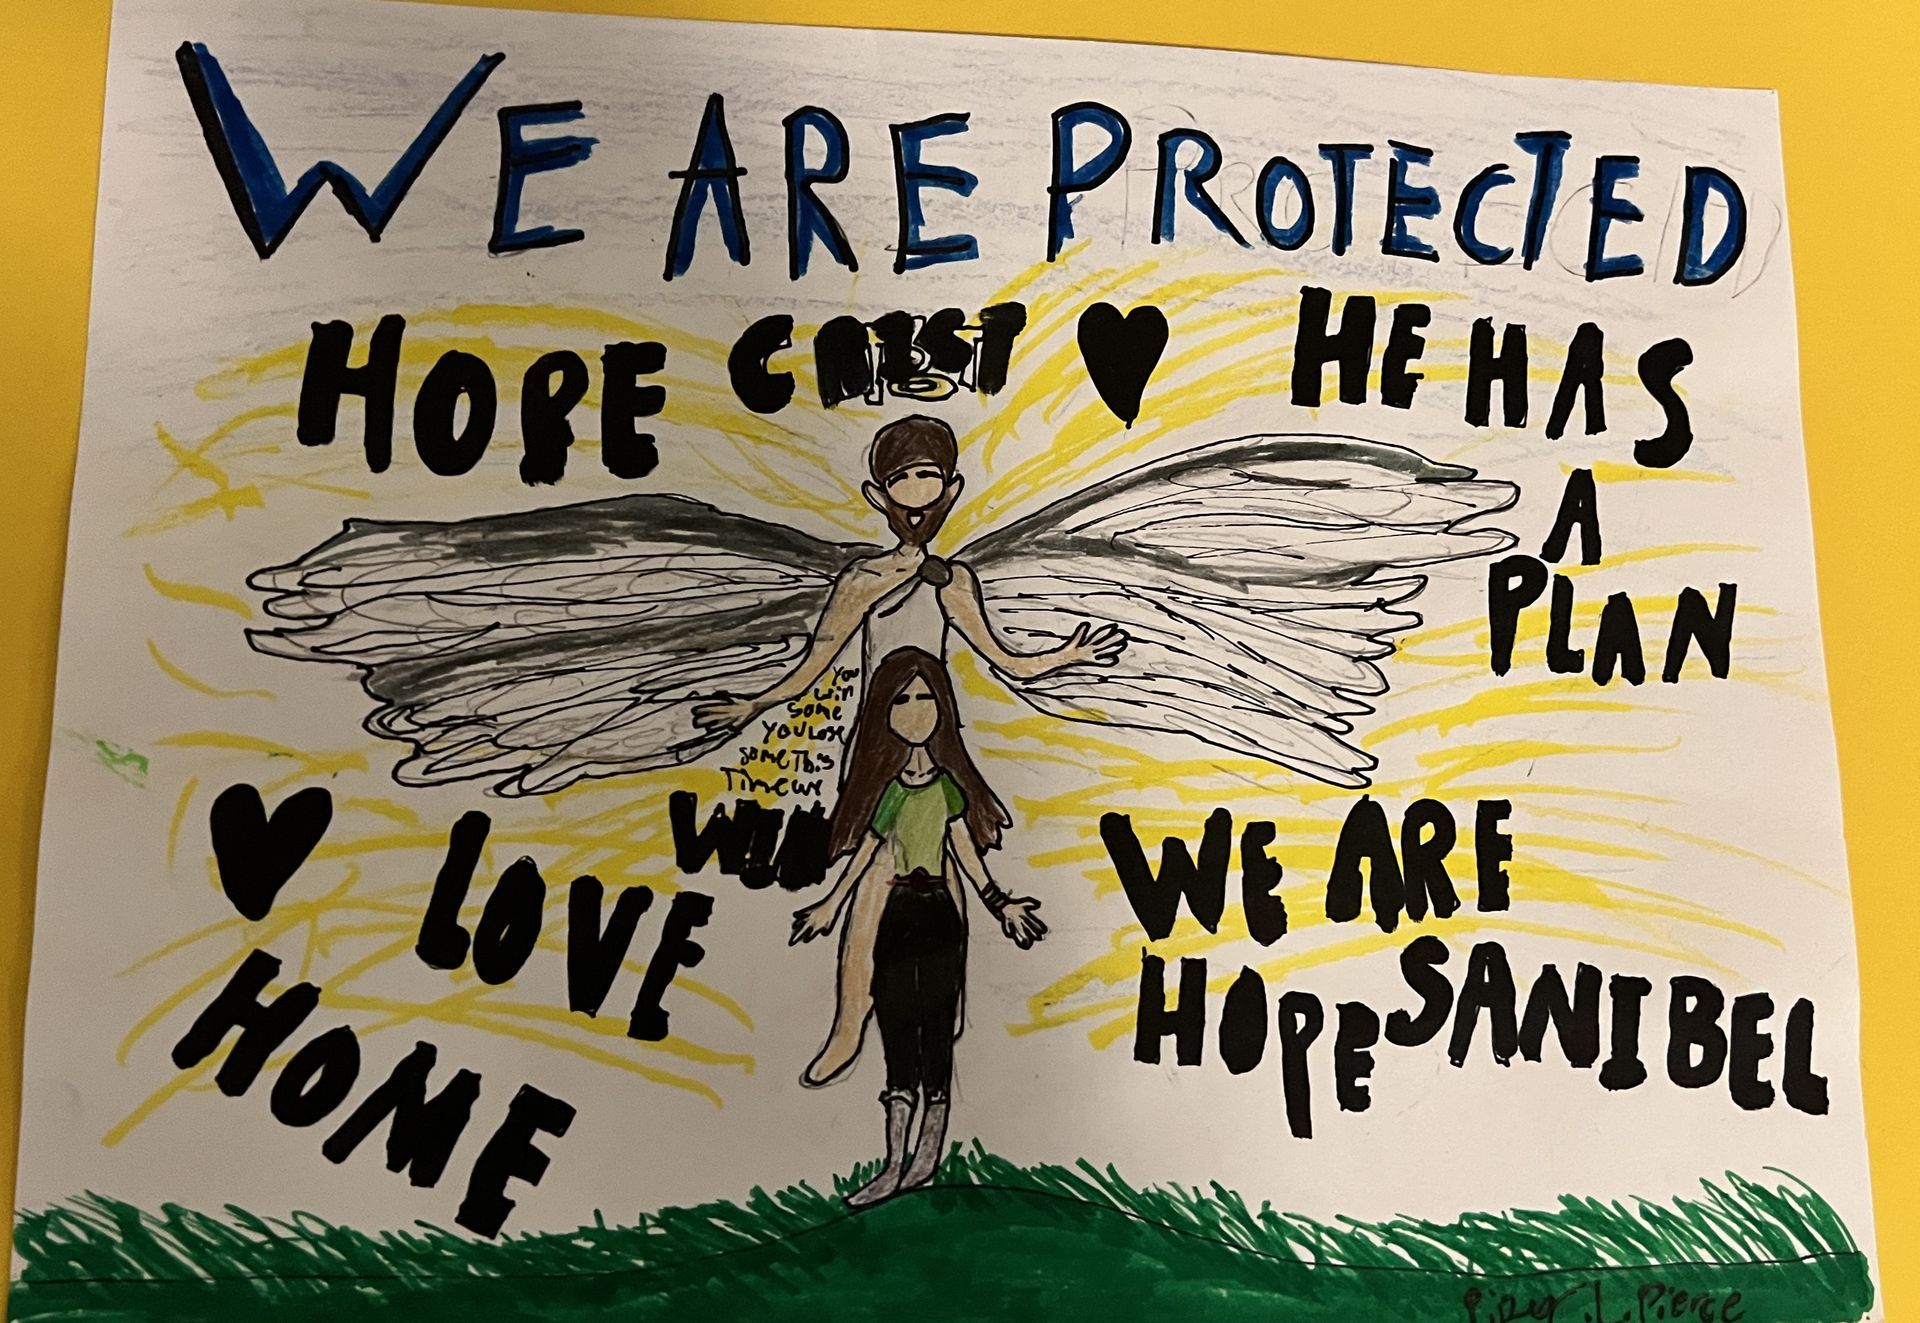 WE ARE PROTECTED
HOPE
HE HAS
A
PLAN
You
win
some
You Lose
some This
Time we
WIN
LOVE
HOME
WE ARE
HOPE SANIBEL
L. Pierce